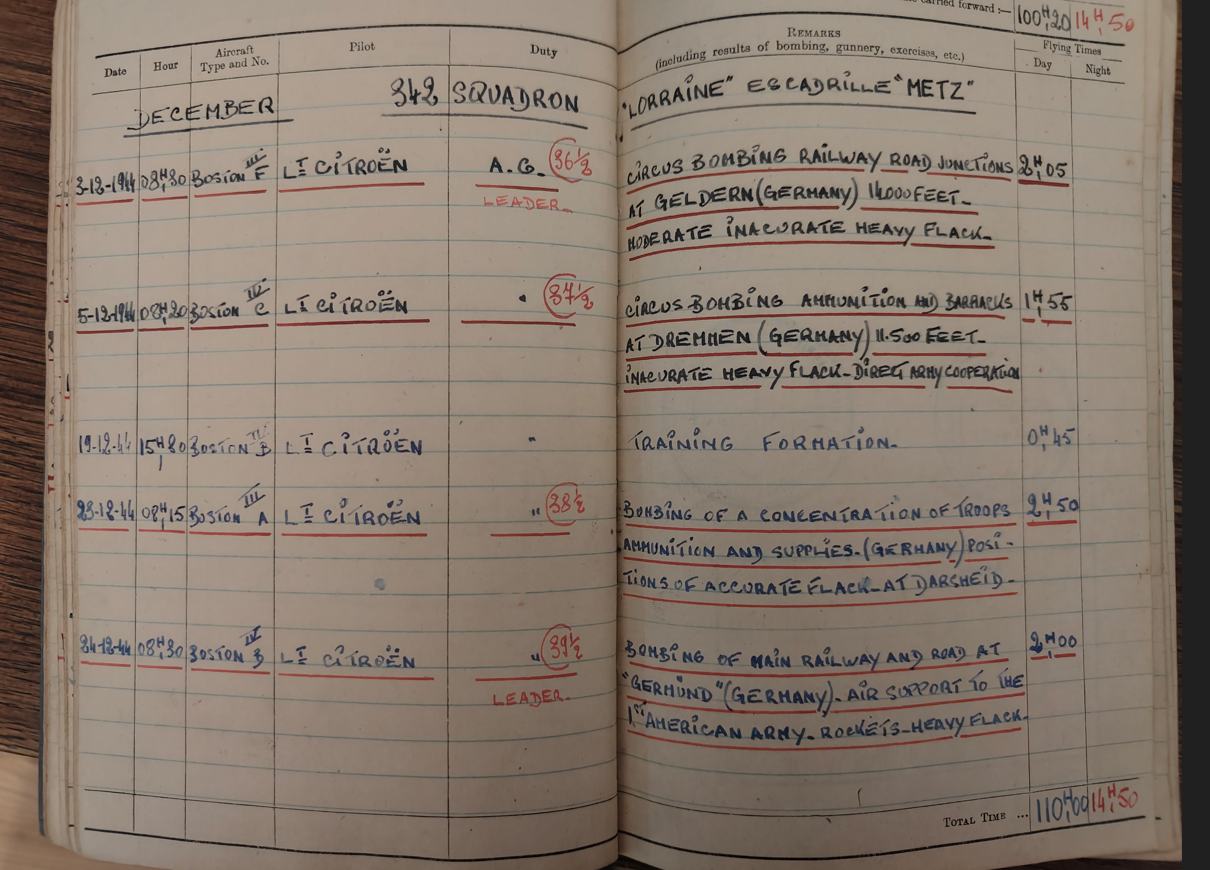 carried forward :— 100H,20 14H,50
Date Hour Aircraft Type and No. Pilot Duty REMARKS (including results of bombing, gunnery, exercises, etc.) Flying Times Day Night
DECEMBER 342 SQUADRON "LORRAINE" ESCADRILLE "METZ"
3-12-1944 08H,30 BOSTON III F LT CITROËN A.G. 36½ CIRCUS BOMBING RAILWAY ROAD JUNCTIONS 2H,05
LEADER_ AT GELDERN (GERMANY) 14.000 FEET_
MODERATE INACURATE HEAVY FLACK_
5-12-1944 08H,20 BOSTON IV C LT CITROËN " 37½ CIRCUS BOMBING AMMUNITION AND BARRACKS 1H,55
AT DREMMEN (GERMANY) 11.500 FEET_
INACURATE HEAVY FLACK_DIRECT ARMY COOPERATION
19-12-44 15H,30 BOSTON B LT CITROËN " TRAINING FORMATION_ 0H,45
23-12-44 08H,15 BOSTON III A LT CITROËN " 38½ BOMBING OF A CONCENTRATION OF TROOPS 2H,50
AMMUNITION AND SUPPLIES_(GERMANY) POSI-
TIONS OF ACCURATE FLACK_AT DARSHEID_
24-12-44 08H,30 BOSTON IV B LT CITROËN " 39½ BOMBING OF MAIN RAILWAY AND ROAD AT 2H,00
LEADER_ "GERMÜND" (GERMANY)_ AIR SUPPORT TO THE
1ST AMERICAN ARMY_ ROCKETS_HEAVY FLACK_
TOTAL TIME ... 110H,00 14H,50